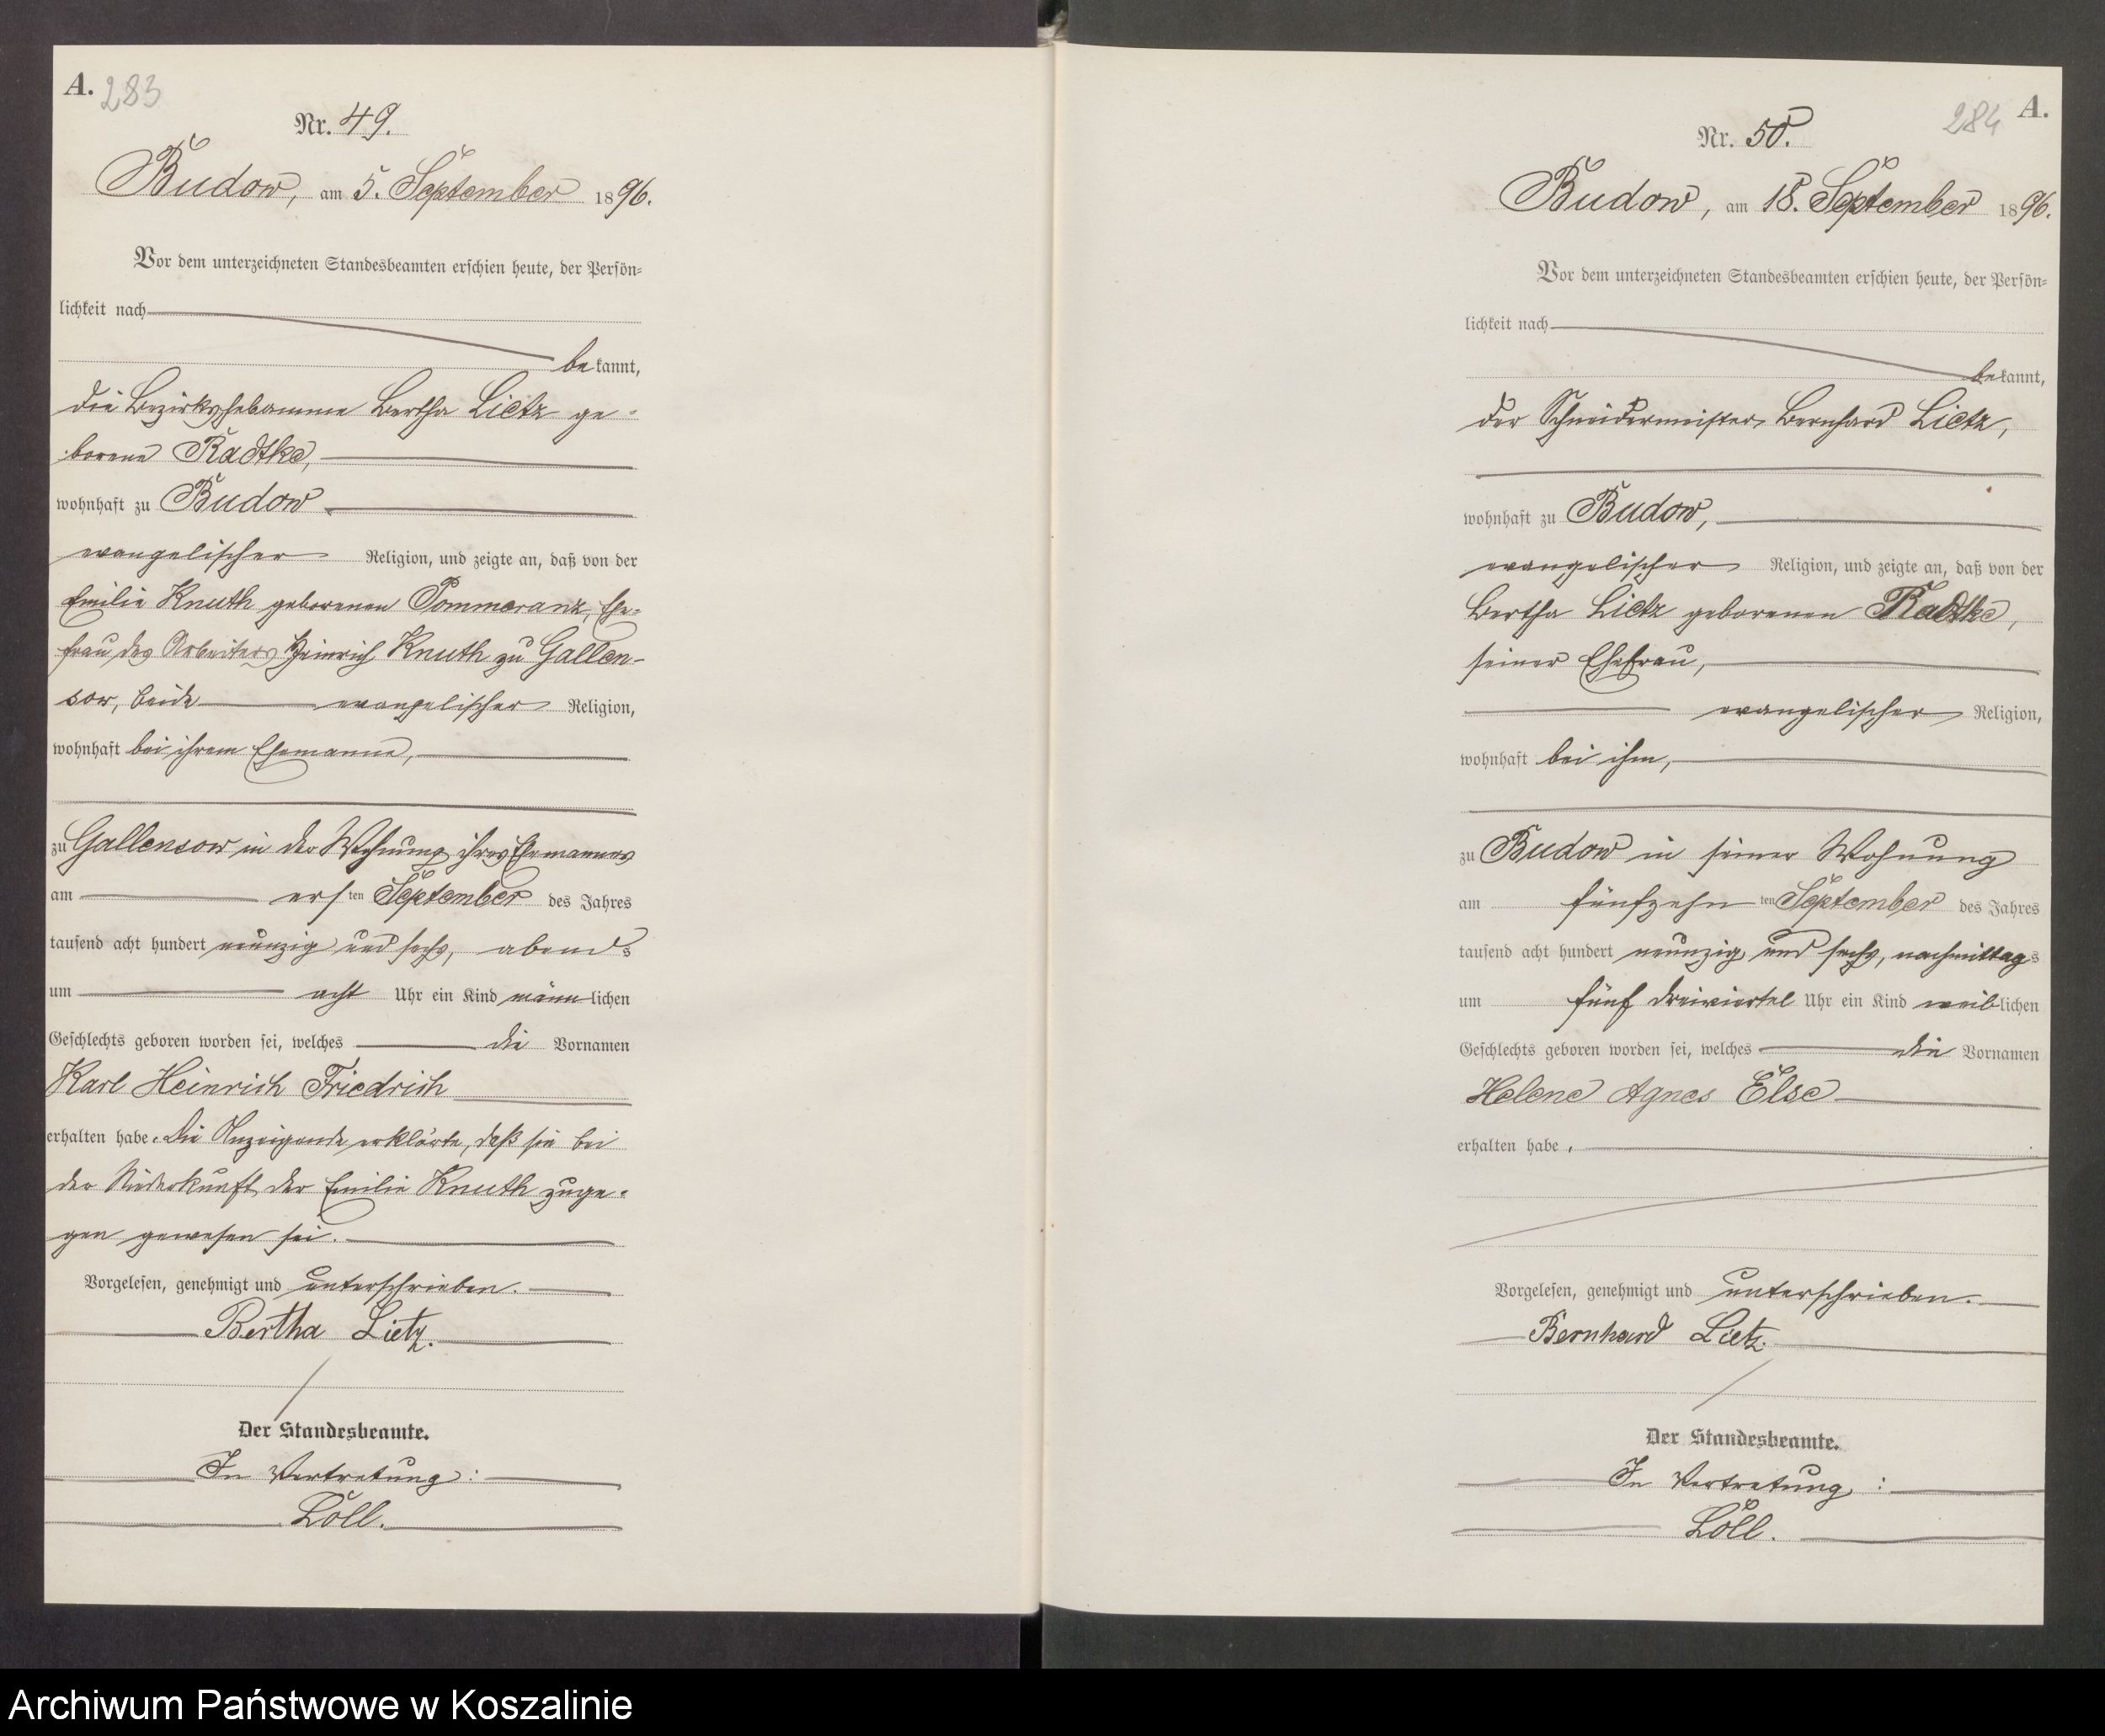 A. 283
Nr. 49.
Budow, am 5. September 1896.
Vor dem unterzeichneten Standesbeamten erschien heute, der Persön=
lichkeit nach
bekannt,
die Bezirkshebamme Bertha Lietz ge-
borene Radtke,
wohnhaft zu Budow,
evangelischer Religion, und zeigte an, daß von der
Emilie Knuth geborenen Pommeranz, Ehe-
frau des Arbeiters Heinrich Knuth zu Gallen-
sow, beide evangelischer Religion,
wohnhaft bei ihrem Ehemanne,
zu Gallensow in der Wohnung ihres Ehemannes
am ersten September des Jahres
tausend acht hundert neunzig und sechs, abends
um acht Uhr ein Kind männlichen
Geschlechts geboren worden sei, welches die Vornamen
Karl Heinrich Friedrich
erhalten habe. Die Anzeigende erklärte, daß sie bei
der Niederkunft der Emilie Knuth zuge-
gen gewesen sei.
Vorgelesen, genehmigt und unterschrieben.
Bertha Lietz.
Der Standesbeamte.
In Vertretung:
Löll.
284 A.
Nr. 50.
Budow, am 18. September 1896.
Vor dem unterzeichneten Standesbeamten erschien heute, der Persön=
lichkeit nach
bekannt,
der Schneidermeister Bernhard Lietz,
wohnhaft zu Budow,
evangelischer Religion, und zeigte an, daß von der
Bertha Lietz geborenen Radtke,
seiner Ehefrau,
evangelischer Religion,
wohnhaft bei ihm,
zu Budow in seiner Wohnung
am fünfzehnten September des Jahres
tausend acht hundert neunzig und sechs, nachmittags
um fünf dreiviertel Uhr ein Kind weiblichen
Geschlechts geboren worden sei, welches die Vornamen
Helene Agnes Else
erhalten habe.
Vorgelesen, genehmigt und unterschrieben.
Bernhard Lietz.
Der Standesbeamte.
In Vertretung:
Löll.
Archiwum Państwowe w Koszalinie